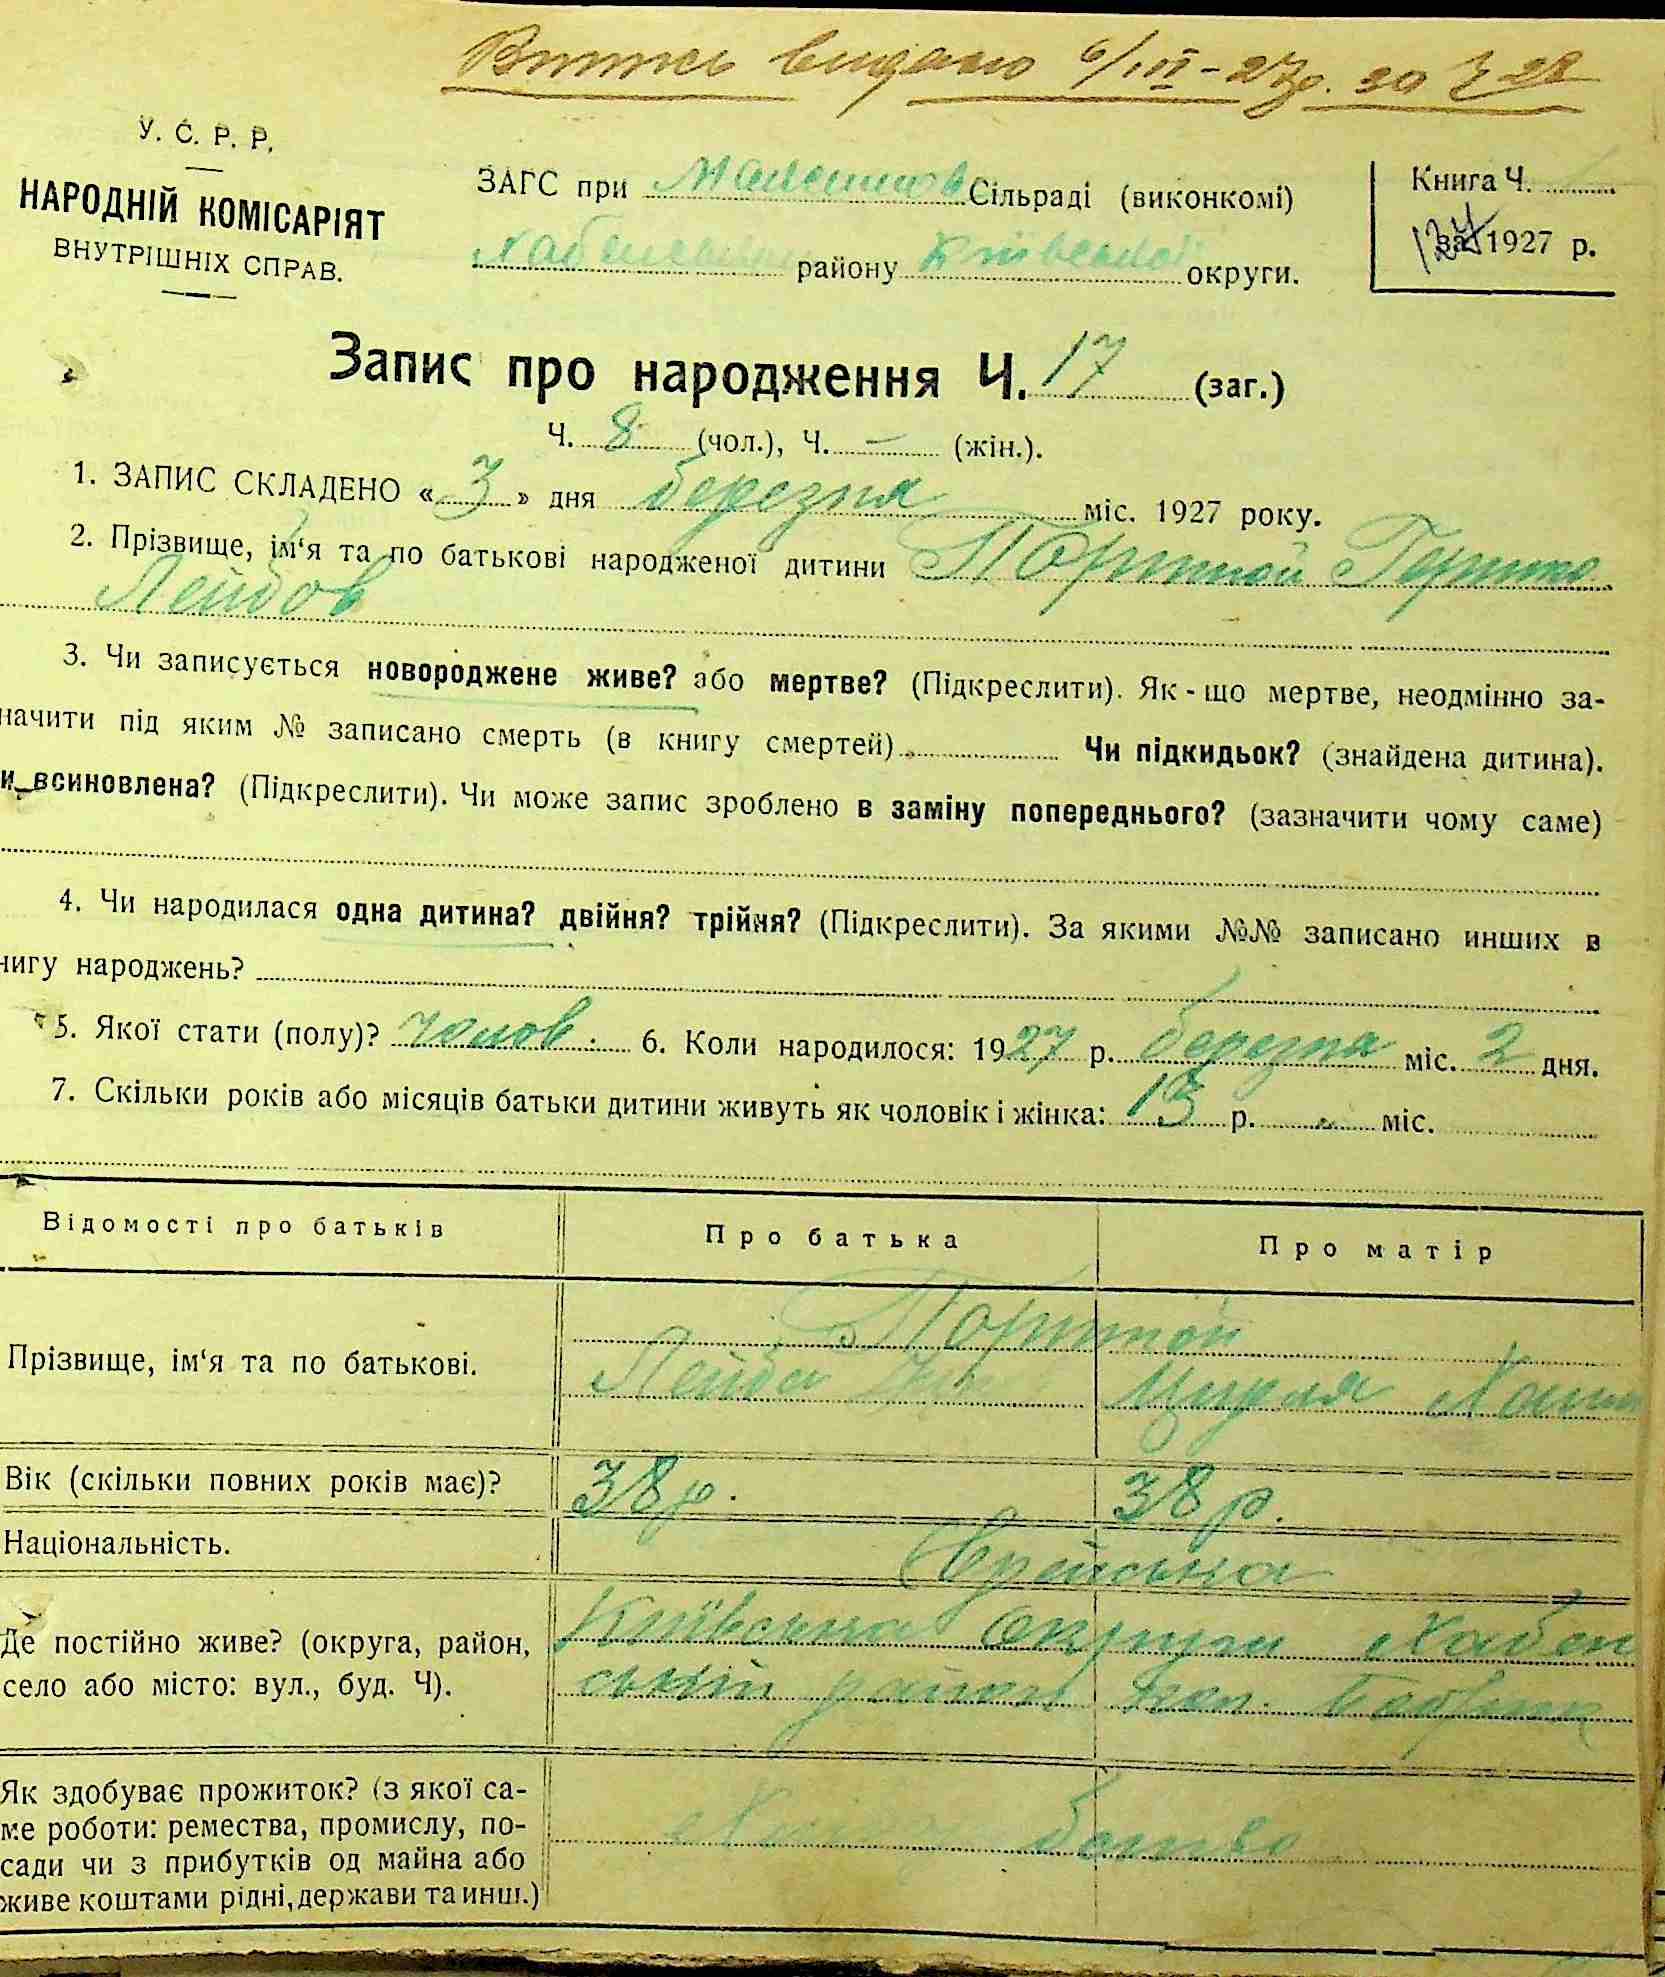 видано 6/III-27р. за № 28
У. С. Р. Р.
НАРОДНІЙ КОМІСАРІЯТ
ВНУТРІШНІХ СПРАВ.
ЗАГС при Сільраді (виконкомі)
району Київської округи.
Книга Ч.
за 1927 р.
Запис про народження Ч. 17 (заг.)
Ч. 8 (чол.), Ч. – (жін.).
1. ЗАПИС СКЛАДЕНО « 3 » дня березня міс. 1927 року.
2. Прізвище, ім'я та по батькові народженої дитини Портной Гершко
Лейбов
3. Чи записується новороджене живе? або мертве? (Підкреслити). Як-що мертве, неодмінно за-
начити під яким № записано смерть (в книгу смертей) Чи підкидьок? (знайдена дитина).
и всиновлена? (Підкреслити). Чи може запис зроблено в заміну попереднього? (зазначити чому саме)
4. Чи народилася одна дитина? двійня? трійня? (Підкреслити). За якими №№ записано инших в
нигу народжень?
5. Якої стати (полу)? чолов. 6. Коли народилося: 1927 р. березня міс. 2 дня.
7. Скільки років або місяців батьки дитини живуть як чоловік і жінка: 13 р. міс.
Відомості про батьків Про батька Про матір
Прізвище, ім'я та по батькові.
Портной
Лейба Цирля
Вік (скільки повних років має)? 38 р. 38 р.
Національність. Єврейська
Де постійно живе? (округа, район,
село або місто: вул., буд. Ч).
Київська округи Хабен
ський район кол.
Як здобуває прожиток? (з якої са-
ме роботи: ремества, промислу, по-
сади чи з прибутків од майна або
живе коштами рідні, держави та инш.)